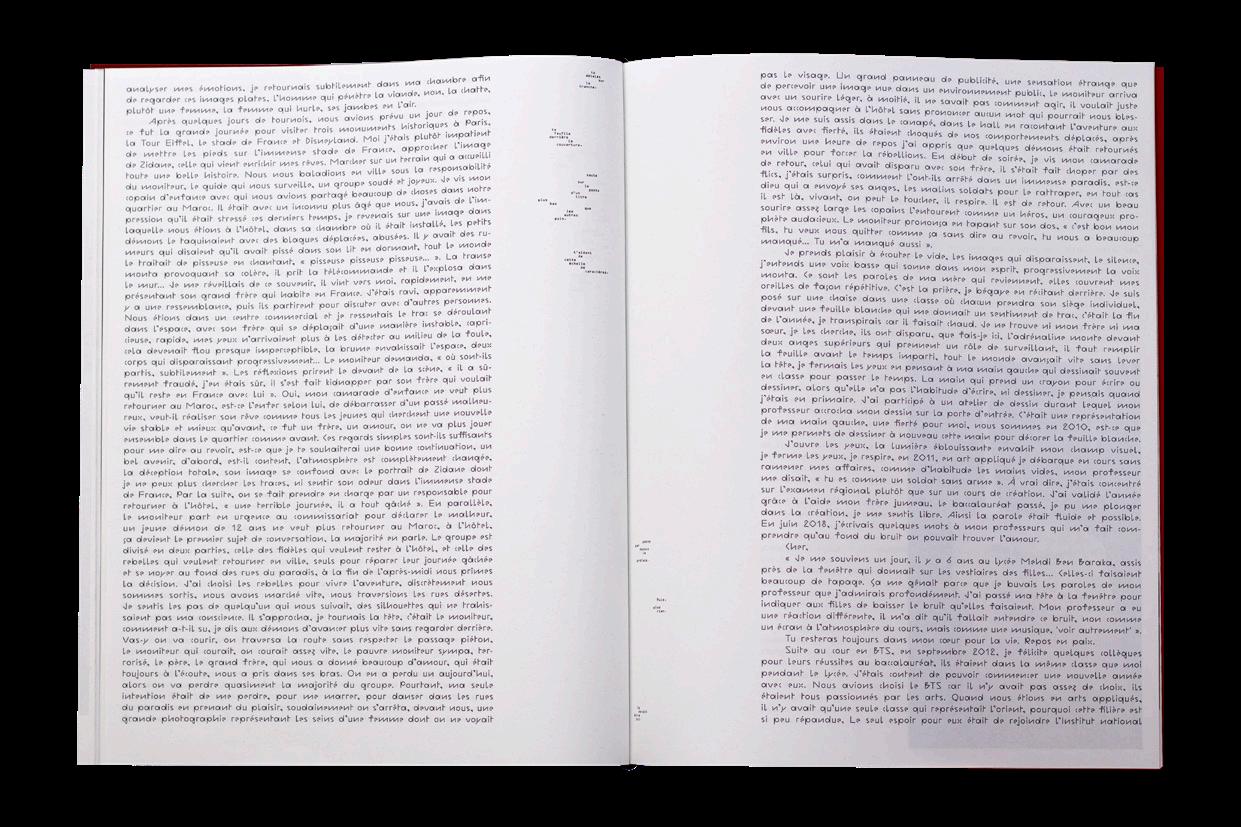 analyser mes émotions, je retournais subtilement dans ma chambre afin
de regarder ces images plates, l'homme qui pénètre la viande, non, la chatte,
plutôt une femme, la femme qui hurle, ses jambes en l'air.
Après quelques jours de tournois, nous avions prévu un jour de repos,
ce fut la grande journée pour visiter trois monuments historiques à Paris,
la Tour Eiffel, le stade de France et Disneyland. Moi j'étais plutôt impatient
de mettre les pieds sur l'immense stade de France, approcher l'image
de Zidane, celle qui vient enrichir mes rêves. Marcher sur un terrain qui a accueilli
toute une belle histoire. Nous nous baladions en ville sous la responsabilité
du moniteur, le guide qui nous surveille, un groupe soudé et joyeux. Je vis mon
copain d'enfance avec qui nous avions partagé beaucoup de choses dans notre
quartier au Maroc. Il était avec un inconnu plus âgé que nous, j'avais de l'im-
pression qu'il était stressé ces derniers temps, je revenais sur une image dans
laquelle nous étions à l'hôtel, dans sa chambre où il était installé, les petits
démons le taquinaient avec des blaques déplacées, abusées. Il y avait des ru-
meurs qui disaient qu'il avait pissé dans son lit en dormant, tout le monde
le traitait de pisseuse en chantant, « pisseuse pisseuse pisseuse... ». La transe
monta provoquant sa colère, il prit la télécommande et il l'explosa dans
le mur... Je me réveillais de ce souvenir, il vint vers moi, rapidement, en me
présentant son grand frère qui habite en France. J'étais ravi, apparemment
y a une ressemblance, puis ils partirent pour discuter avec d'autres personnes.
Nous étions dans un centre commercial et je ressentais le trac se déroulant
dans l'espace, avec son frère qui se déplaçait d'une manière instable, capri-
cieuse, rapide, mes yeux n'arrivaient plus à les détecter au milieu de la foule,
cela devenait flou presque imperceptible, la brume envahissait l'espace, deux
corps qui disparaissant progressivement... Le moniteur demanda, « où sont-ils
partis, subtilement ». Les réflexions prirent le devant de la scène, « il a sû-
rement fraudé, j'en étais sûr, il s'est fait kidnapper par son frère qui voulait
qu'il reste en France avec lui ». Oui, mon camarade d'enfance ne veut plus
retourner au Maroc, est-ce l'enfer selon lui, de débarrasser d'un passé malheu-
reux, veut-il réaliser son rêve comme tous les jeunes qui cherchent une nouvelle
vie stable et mieux qu'avant, ce fut un frère, un amour, on ne va plus jouer
ensemble dans le quartier comme avant. Ces regards simples sont-ils suffisants
pour me dire au revoir, est-ce que je te souhaiterai une bonne continuation, un
bel avenir, d'abord, est-il content, l'atmosphère est complètement changée,
la déception totale, son image se confond avec le portrait de Zidane dont
je ne peux plus chercher les traces, ni sentir son odeur dans l'immense stade
de France. Par la suite, on se fait prendre en charge par un responsable pour
retourner à l'hôtel, « une terrible journée, il a tout gâché ». En parallèle,
le moniteur part en urgence au commissariat pour déclarer le malheur,
un jeune démon de 12 ans ne veut plus retourner au Maroc, à l'hôtel,
ça devient le premier sujet de conversation, la majorité en parle. Le groupe est
divisé en deux parties, celle des fidèles qui veulent rester à l'hôtel, et celle des
rebelles qui veulent retourner en ville, seuls pour réparer leur journée gâchée
et se noyer au fond des rues du paradis, à la fin de l'après-midi nous primes
la décision. J'ai choisi les rebelles pour vivre l'aventure, discrètement nous
sommes sortis, nous avons marché vite, nous traversions les rues désertes.
Je sentis les pas de quelqu'un qui nous suivait, des silhouettes qui ne trahis-
saient pas ma conscience. Il s'approcha, je tournais la tête, c'était le moniteur,
comment a-t-il su, je dis aux démons d'avancer plus vite sans regarder derrière.
Vas-y on va courir, on traversa la route sans respecter le passage piéton,
le moniteur qui courait, on courait assez vite, le pauvre moniteur sympa, ter-
rorisé, le père, le grand frère, qui nous a donné beaucoup d'amour, qui était
toujours à l'écoute, nous a pris dans ses bras. On en a perdu un aujourd'hui,
alors on va perdre quasiment la majorité du groupe. Pourtant, ma seule
intention était de me perdre, pour me marrer, pour danser dans les rues
du paradis en prenant du plaisir, soudainement on s'arrêta, devant nous, une
grande photographie représentant les seins d'une femme dont on ne voyait
la
sur
la
tranche.
la
feuille
derrière
la
couverture.
toute
sur
le
poste
plus
libre
plus
bas
que
les
autres
puis.
s'aident
de
cette
échelle
de
caractères.
pas le visage. Un grand panneau de publicité, une sensation étrange que
de percevoir une image nue dans un environnement public, le moniteur arriva
avec un sourire léger, à moitié, il ne savait pas comment agir, il voulait juste
nous accompagner à l'hôtel sans prononcer aucun mot qui pourrait nous bles-
ser. Je me suis assis dans le canapé, dans le hall en racontant l'aventure aux
fidèles avec fierté, ils étaient choqués de nos comportements déplacés, après
environ une heure de repos j'ai appris que quelques démons était retournés
en ville pour forcer la rébellions. En début de soirée, je vis mon camarade
de retour, celui qui avait disparu avec son frère, il s'était fait choper par des
flics, j'étais surpris, comment l'ont-ils arrêté dans un immense paradis, est-ce
dieu qui a envoyé ses anges, les malins soldats pour le rattraper, en tout cas
il est là, vivant, on peut le toucher, il respire. Il est de retour. Avec un beau
sourire assez large les copains l'entourent comme un héros, un courageux pro-
phète audacieux. Le moniteur prononça en tapant sur son dos, « c'est bon mon
fils, tu veux nous quitter comme ça sans dire au revoir, tu nous a beaucoup
manqué... Tu m'a manqué aussi ».
Je prends plaisir à écouter le vide, les images qui disparaissent, le silence,
j'entends une voix basse qui sonne dans mon esprit, progressivement la voix
monta. Ce sont les paroles de ma mère qui reviennent, elles couvrent mes
oreilles de façon répétitive. C'est la prière, je bégaye en récitant derrière. Je suis
posé sur une chaise dans une classe où chacun prendra son siège individuel,
devant une feuille blanche qui me donnait un sentiment de trac, c'était la fin
de l'année, je transpirais car il faisait chaud. Je ne trouve ni mon frère ni ma
sœur, je les cherche, ils ont disparu, que fais-je ici, l'adrénaline monte devant
deux anges supérieurs qui prennent un rôle de surveillant, il faut remplir
la feuille avant le temps imparti, tout le monde avançait vite sans lever
la tête, je fermais les yeux en pensant à ma main gauche qui dessinait souvent
en classe pour passer le temps. La main qui prend un crayon pour écrire ou
dessiner, alors qu'elle n'a pas l'habitude d'écrire, ni dessiner, je pensais quand
j'étais en primaire. J'ai participé à un atelier de dessin durant lequel mon
professeur accrocha mon dessin sur la porte d'entrée. C'était une représentation
de ma main gauche, une fierté pour moi, nous sommes en 2010, est-ce que
je me permets de dessiner à nouveau cette main pour décorer la feuille blanche.
J'ouvre les yeux, la lumière éblouissante envahit mon champ visuel,
je ferme les yeux, je respire, en 2011, en art appliqué je débarque en cours sans
ramener mes affaires, comme d'habitude les mains vides, mon professeur
me disait, « tu es comme un soldat sans arme ». À vrai dire, j'étais concentré
sur l'examen régional plutôt que sur un cours de création. J'ai validé l'année
grâce à l'aide mon frère jumeau, le baccalauréat passé, je pu me plonger
dans la création, je me sentis libre. Ainsi la parole était fluide et possible.
En juin 2018, j'écrivais quelques mots à mon professeurs qui m'a fait com-
prendre qu'au fond du bruit on pouvait trouver l'amour.
Cher,
« Je me souviens un jour, il y a 6 ans au lycée Mehdi Ben Baraka, assis
près de la fenêtre qui donnait sur les vestiaires des filles... Celles-ci faisaient
beaucoup de tapage. Ça me gênait parce que je buvais les paroles de mon
professeur que j'admirais profondément. J'ai passé ma tête à la fenêtre pour
indiquer aux filles de baisser le bruit qu'elles faisaient. Mon professeur a eu
une réaction différente, il m'a dit qu'il fallait entendre ce bruit, non comme
un écran à l'atmosphère du cours, mais comme une musique, 'voir autrement' ».
Tu resteras toujours dans mon cœur pour la vie. Repos en paix.
Suite au cour en BTS, en septembre 2012, je félicite quelques collègues
pour leurs réussites au baccalauréat, ils étaient dans la même classe que moi
pendant le lycée. J'étais content de pouvoir commencer une nouvelle année
avec eux. Nous avions choisi le BTS car il n'y avait pas assez de choix, ils
étaient tous passionnés par les arts. Quand nous étions en arts appliqués,
il n'y avait qu'une seule classe qui représentait l'orient, pourquoi cette filière est
si peu répandue. Le seul espoir pour eux était de rejoindre l'institut national